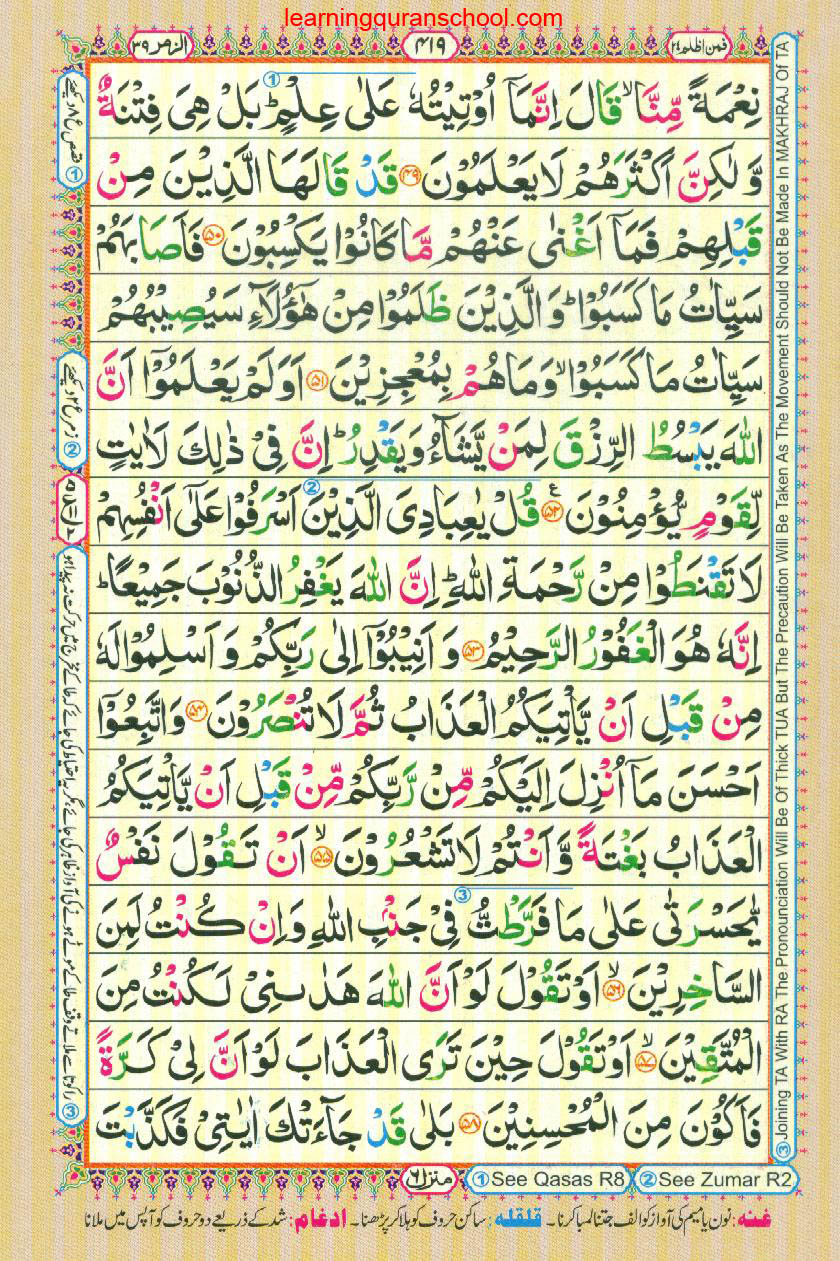 learningquranschool.com
الزمر ٣٩
٤١٩
فمن اظلم ٢٤
نِعْمَةً مِّنَّا ۙ قَالَ اِنَّمَاۤ اُوْتِيْتُهٗ عَلٰى عِلْمٍ ؕ بَلْ هِىَ فِتْنَةٌ
وَّلٰـكِنَّ اَكْثَرَهُمْ لَا يَعْلَمُوْنَ ﴿۴۹﴾ قَدْ قَالَهَا الَّذِيْنَ مِنْ
قَبْلِهِمْ فَمَاۤ اَغْنٰى عَنْهُمْ مَّا كَانُوْا يَكْسِبُوْنَ ﴿۵۰﴾ فَاَصَابَهُمْ
سَيِّاٰتُ مَا كَسَبُوْا ؕ وَالَّذِيْنَ ظَلَمُوْا مِنْ هٰٓؤُلَاۤءِ سَيُصِيْبُهُمْ
سَيِّاٰتُ مَا كَسَبُوْا ۙ وَمَا هُمْ بِمُعْجِزِيْنَ ﴿۵۱﴾ اَوَلَمْ يَعْلَمُوْۤا اَنَّ
اللّٰهَ يَبْسُطُ الرِّزْقَ لِمَنْ يَّشَآءُ وَيَقْدِرُ ؕ اِنَّ فِىْ ذٰلِكَ لَاٰيٰتٍ
لِّقَوْمٍ يُّؤْمِنُوْنَ ﴿۵۲﴾ قُلْ يٰعِبَادِىَ الَّذِيْنَ اَسْرَفُوْا عَلٰٓى اَنْفُسِهِمْ
لَا تَقْنَطُوْا مِنْ رَّحْمَةِ اللّٰهِ ؕ اِنَّ اللّٰهَ يَغْفِرُ الذُّنُوْبَ جَمِيْعًا ؕ
اِنَّهٗ هُوَ الْغَفُوْرُ الرَّحِيْمُ ﴿۵۳﴾ وَاَنِيْبُوْۤا اِلٰى رَبِّكُمْ وَاَسْلِمُوْا لَهٗ
مِنْ قَبْلِ اَنْ يَّاْتِيَكُمُ الْعَذَابُ ثُمَّ لَا تُنْصَرُوْنَ ﴿۵۴﴾ وَاتَّبِعُوْۤا
اَحْسَنَ مَاۤ اُنْزِلَ اِلَيْكُمْ مِّنْ رَّبِّكُمْ مِّنْ قَبْلِ اَنْ يَّاْتِيَكُمُ
الْعَذَابُ بَغْتَةً وَّاَنْتُمْ لَا تَشْعُرُوْنَ ﴿۵۵﴾ ۙ اَنْ تَقُوْلَ نَفْسٌ
يّٰحَسْرَتٰى عَلٰى مَا فَرَّطْتُّ فِىْ جَنْۢبِ اللّٰهِ وَاِنْ كُنْتُ لَمِنَ
السَّاخِرِيْنَ ﴿۵۶﴾ ۙ اَوْ تَقُوْلَ لَوْ اَنَّ اللّٰهَ هَدٰٮنِىْ لَكُنْتُ مِنَ
الْمُتَّقِيْنَ ﴿۵۷﴾ ۙ اَوْ تَقُوْلَ حِيْنَ تَرَى الْعَذَابَ لَوْ اَنَّ لِىْ كَرَّةً
فَاَكُوْنَ مِنَ الْمُحْسِنِيْنَ ﴿۵۸﴾ بَلٰى قَدْ جَآءَتْكَ اٰيٰتِىْ فَكَذَّبْتَ
③ Joining TA With RA The Pronounciation Will Be Of Thick TUA But The Precaution Will Be Taken As The Movement Should Not Be Made In MAKHRAJ Of TA
منزل ٦
① See Qasas R8
② See Zumar R2
غنه: نون یا میم کی آواز کو الف جتنا لمبا کرنا۔ قلقله: ساکن حروف کو ہلا کر پڑھنا۔ ادغام: شد کے ذریعے دو حروف کو آپس میں ملانا